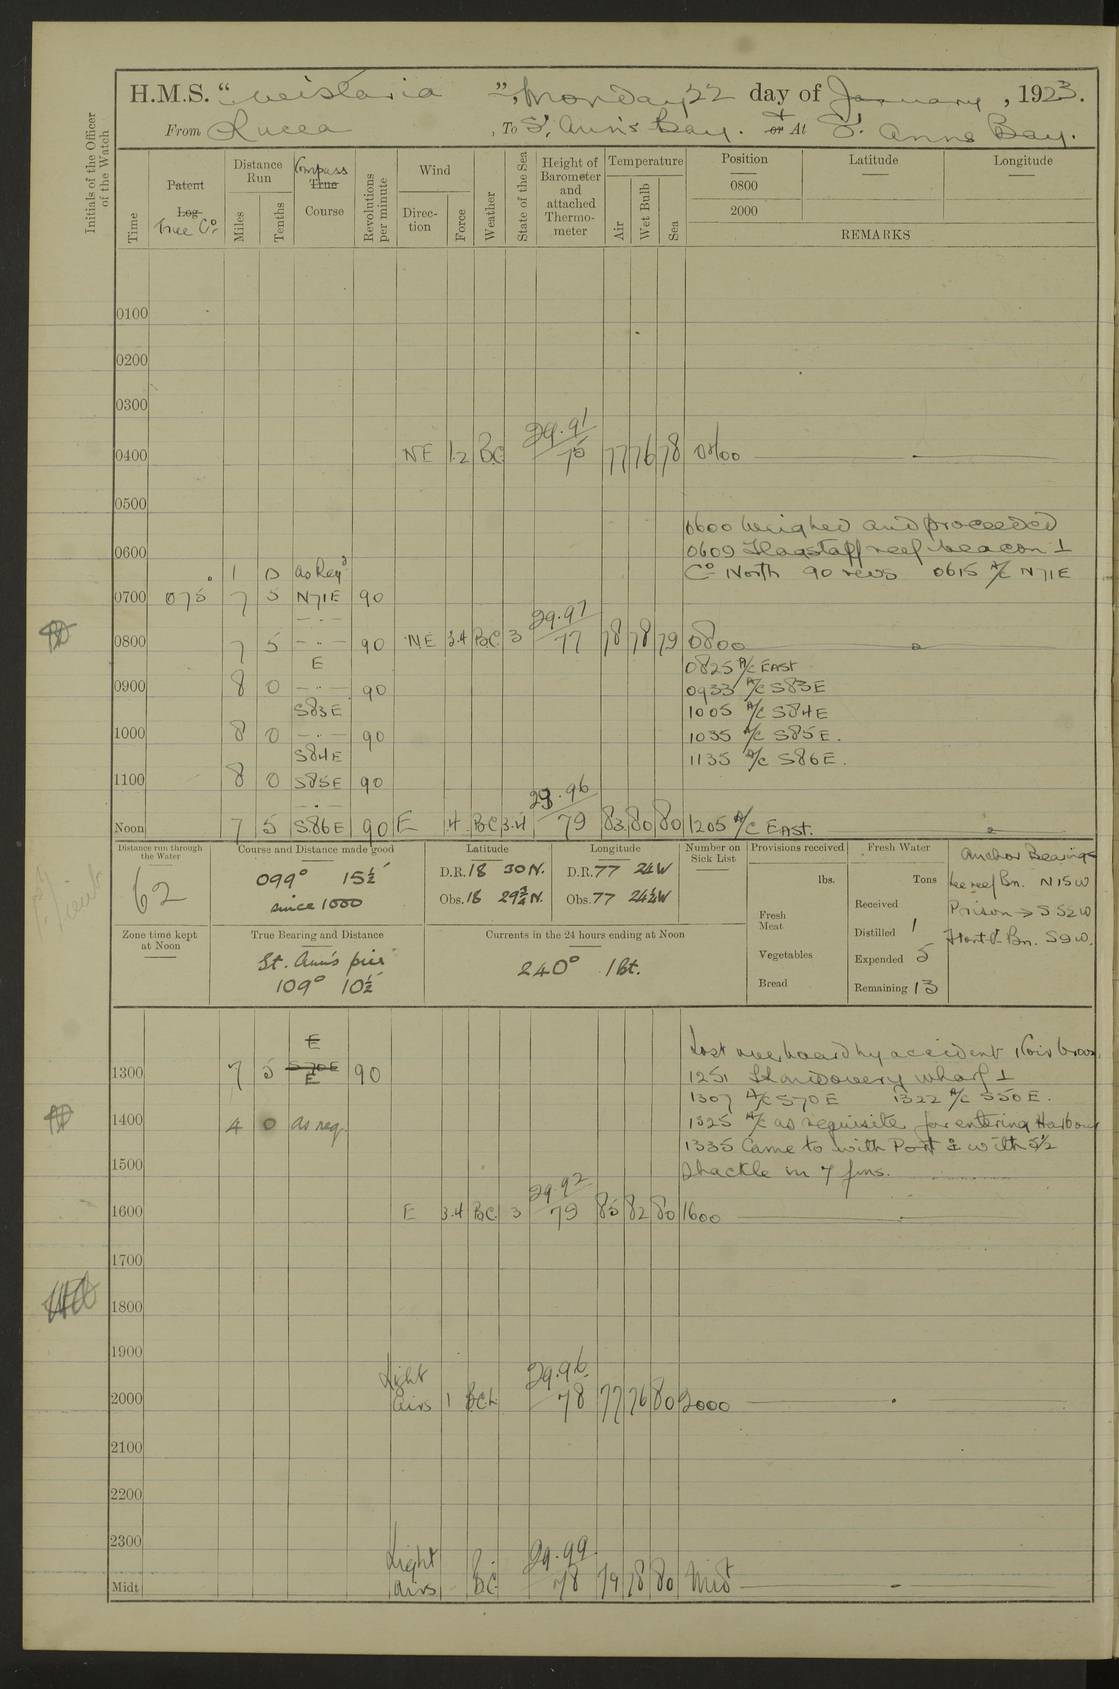 H.M.S. "Wistaria", Monday 22 day of January, 1923.
From Lucea, To St. Ann's Bay. or At St. Anns Bay.
Initials of the Officer of the Watch
Time
Patent Log True Co.
Distance Run Miles Tenths
Compass True Course
Revolutions per minute
Wind Direction Force
Weather
State of the Sea
Height of Barometer and attached Thermometer
Temperature Air Wet Bulb Sea
Position Latitude Longitude
0800
2000
REMARKS
0100
0200
0300
0400 NE 1.2 BC 29.91 76 77 76 78 0400
0500
0600 weighed and proceeded
0600
0609 Flagstaff reef beacon ⊥
1 0 as Reqd Co. North 90 revs 0615 A/C N71E
0700 075° 7 5 N71E 90
0800 7 5 - " - 90 NE 3.4 BC 3 29.97 77 78 78 79 0800
E 0825 A/C EAST
0900 8 0 - " - 90 0933 A/C S83E
S83E 1005 A/C S84E
1000 8 0 - " - 90 1035 A/C S85E.
S84E 1135 A/C S86E.
1100 8 0 S85E 90
Noon 7 5 S86E 90 E 4 BC 3.4 29.96 79 83 80 80 1205 A/C EAST.
Distance run through the Water
62
Course and Distance made good
099° 15½
since 1000
Latitude
D.R. 18 30 N.
Obs. 18 29¾ N.
Longitude
D.R. 77 24 W
Obs. 77 24¼ W
Number on Sick List
Provisions received
lbs.
Fresh Meat
Vegetables
Bread
Fresh Water
Tons
Received
Distilled 1
Expended 5
Remaining 13
Anchor Bearings
Lee reef Bn. N15W
Prison → S52W
Front Bn. S9W.
Zone time kept at Noon
True Bearing and Distance
St. Ann's pier
109° 10½
Currents in the 24 hours ending at Noon
240° 1 kt.
E Lost overboard by accident
1300 7 5 S70E E 90 1251 Llandovery wharf ⊥
1307 A/C S70E 1322 A/C S50E.
1400 4 0 as req. 1325 A/C as requisite for entering Harbour
1335 Came to with Port with 5½
1500 Shackle in 7 fms.
1600 E 3.4 BC. 3 29.92 79 85 82 80 1600
1700
1800
1900
2000 Light airs 1 29.96 78 77 76 80 2000
2100
2200
2300
Midt Light airs BC 29.99 78 79 78 80 Midt